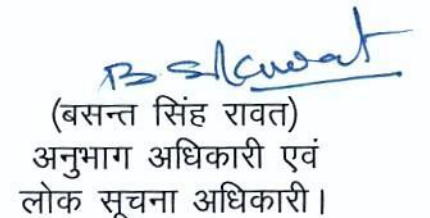 B S Rawat
(बसन्त सिंह रावत)
अनुभाग अधिकारी एवं
लोक सूचना अधिकारी।